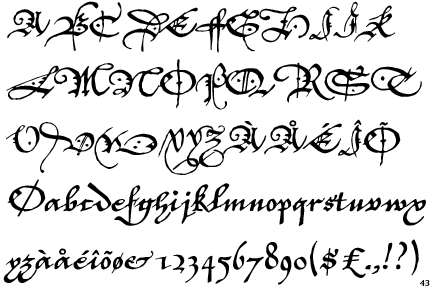 ABCDEFGHIJK
LMNOPQRST
UVWXYZÀÅÉÎÕ
Øabcdefghijklmnopqrstuvwx
yzàåéîõøe&1234567890($£.,!?)
43